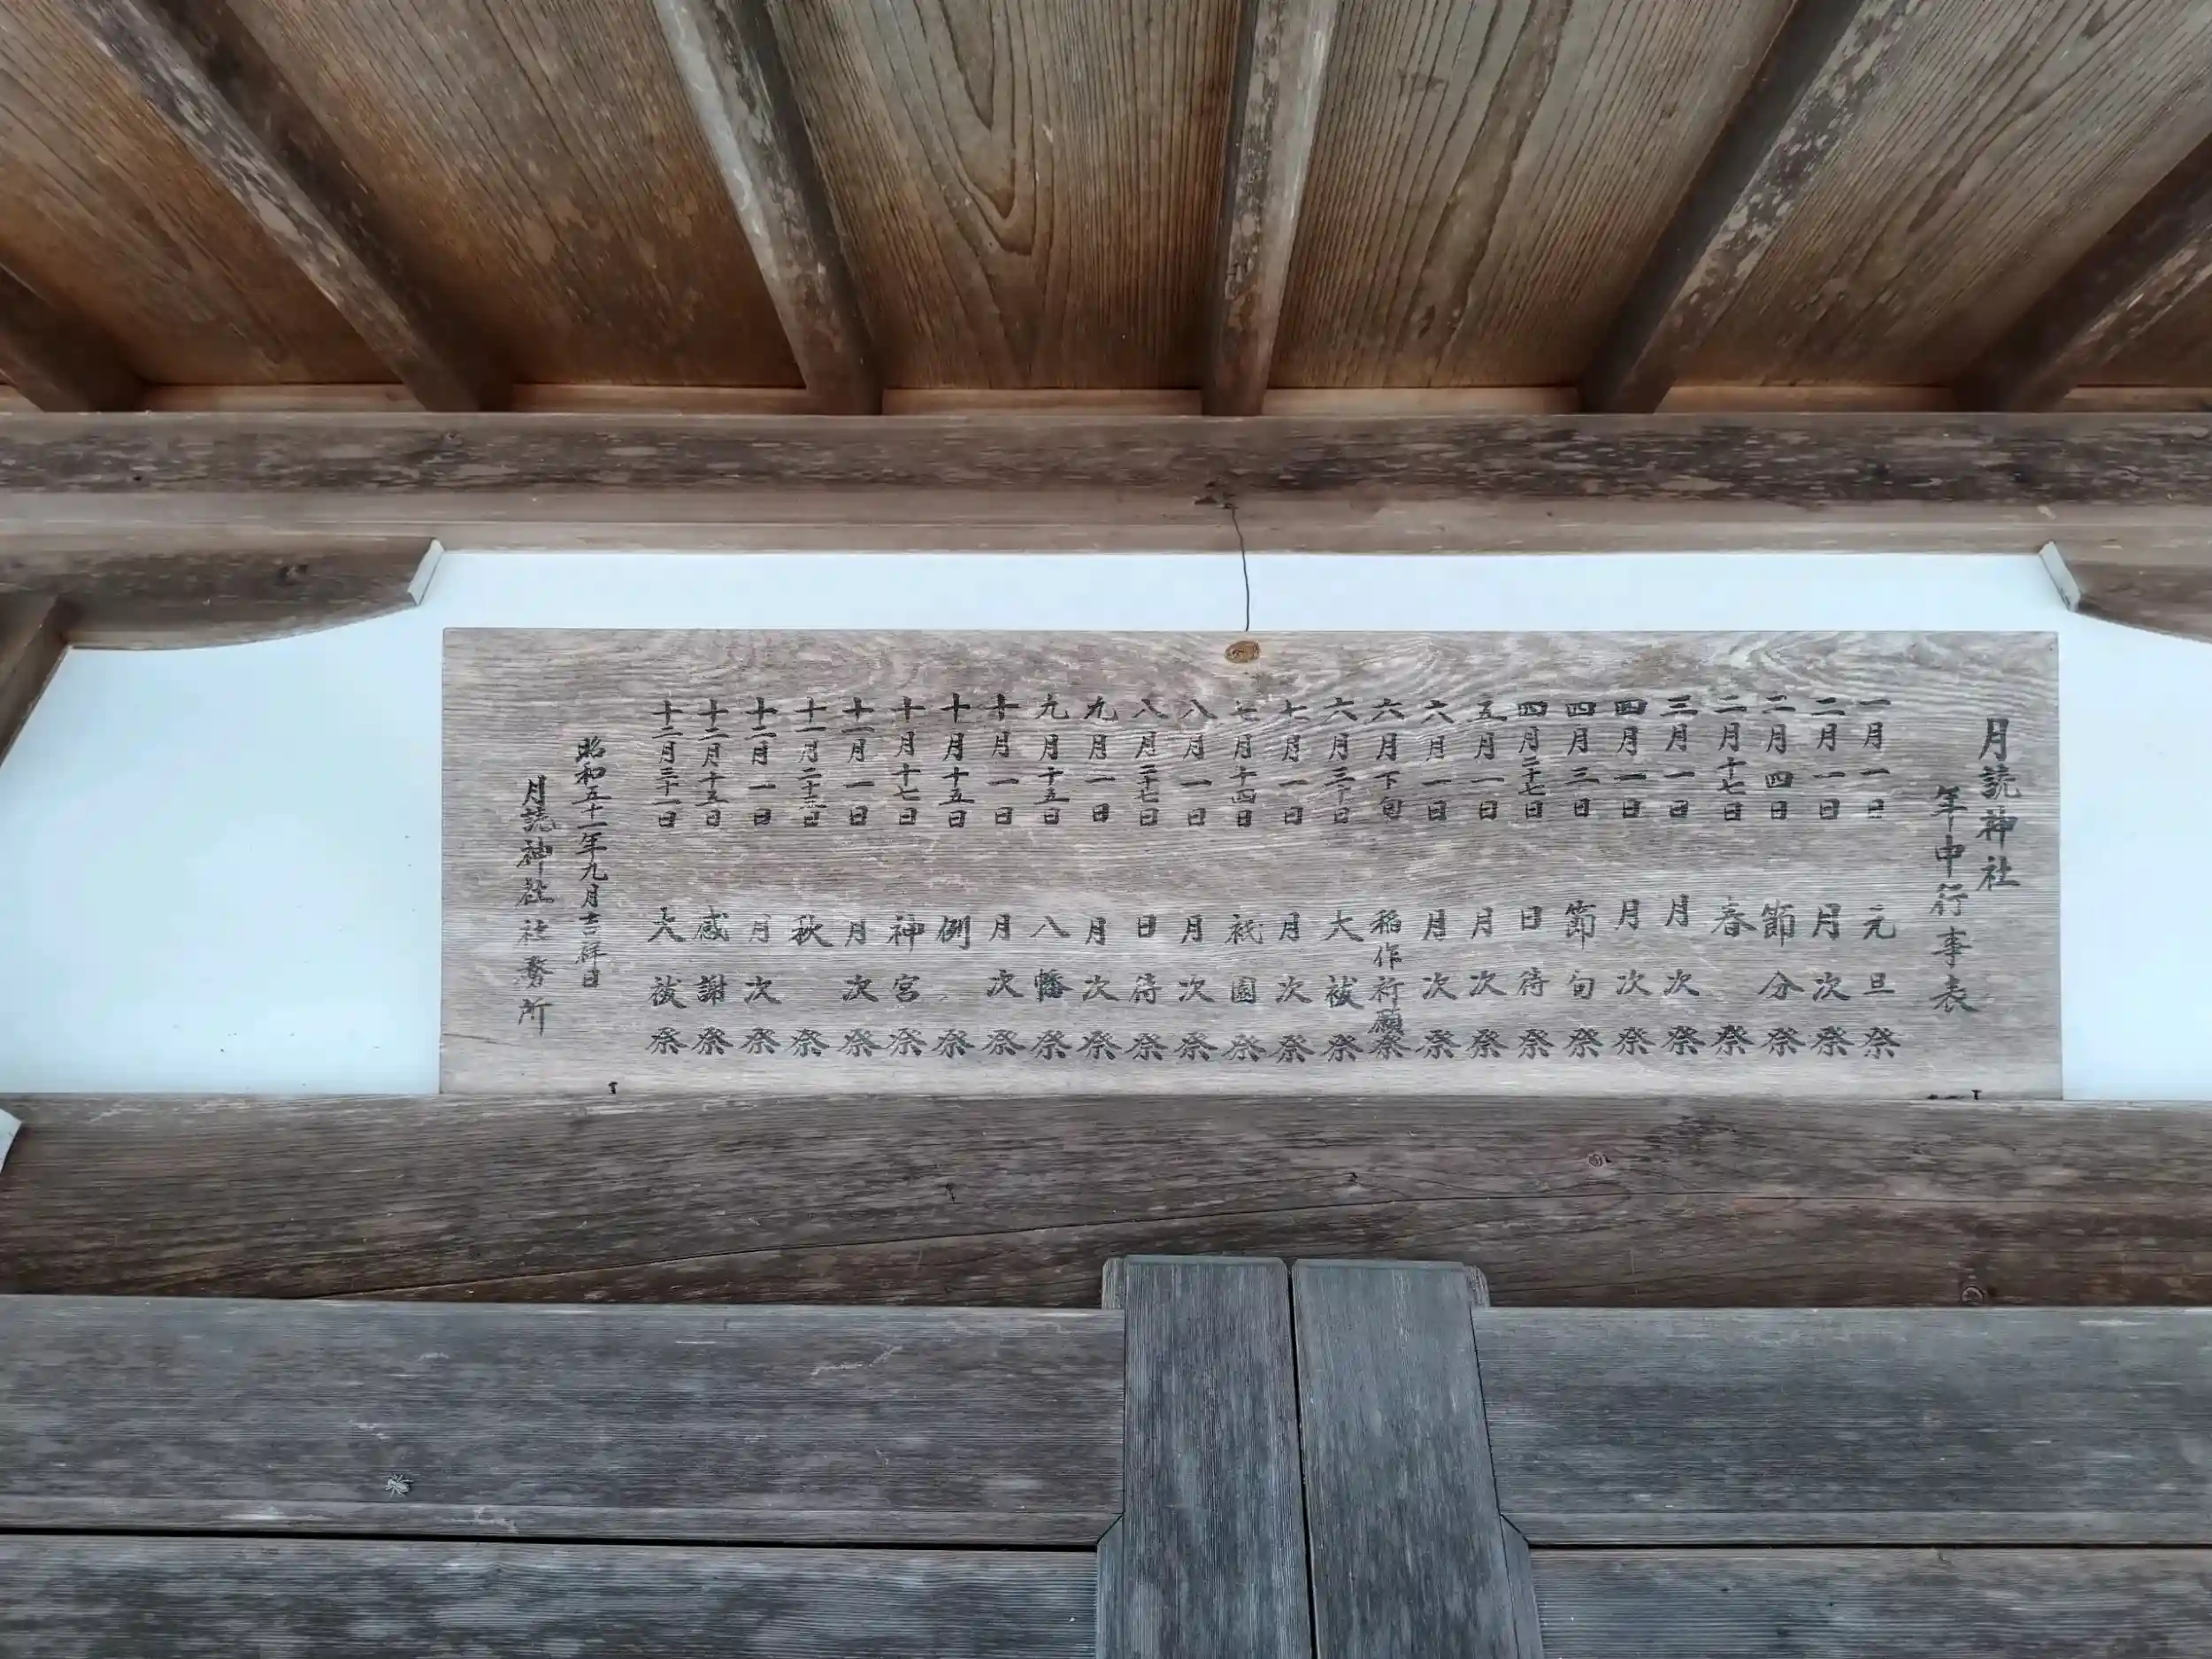 月読神社
年中行事表
一月一日 元旦祭
二月一日 月次祭
二月四日 節分祭
二月十七日 春祭
三月一日 月次祭
四月一日 月次祭
四月三日 節句祭
四月二十七日 日待祭
五月一日 月次祭
六月一日 月次祭
六月下旬 稲作祈願祭
六月三十日 大祓祭
七月一日 月次祭
七月十四日 祇園祭
八月一日 月次祭
八月二十七日 日待祭
九月一日 月次祭
九月十五日 八幡祭
十月一日 月次祭
十月十五日 例祭
十月十七日 神宮祭
十一月一日 月次祭
十一月二十三日 秋祭
十二月一日 月次祭
十二月十五日 感謝祭
十二月三十一日 大祓祭
昭和五十一年九月吉祥日
月読神社社務所